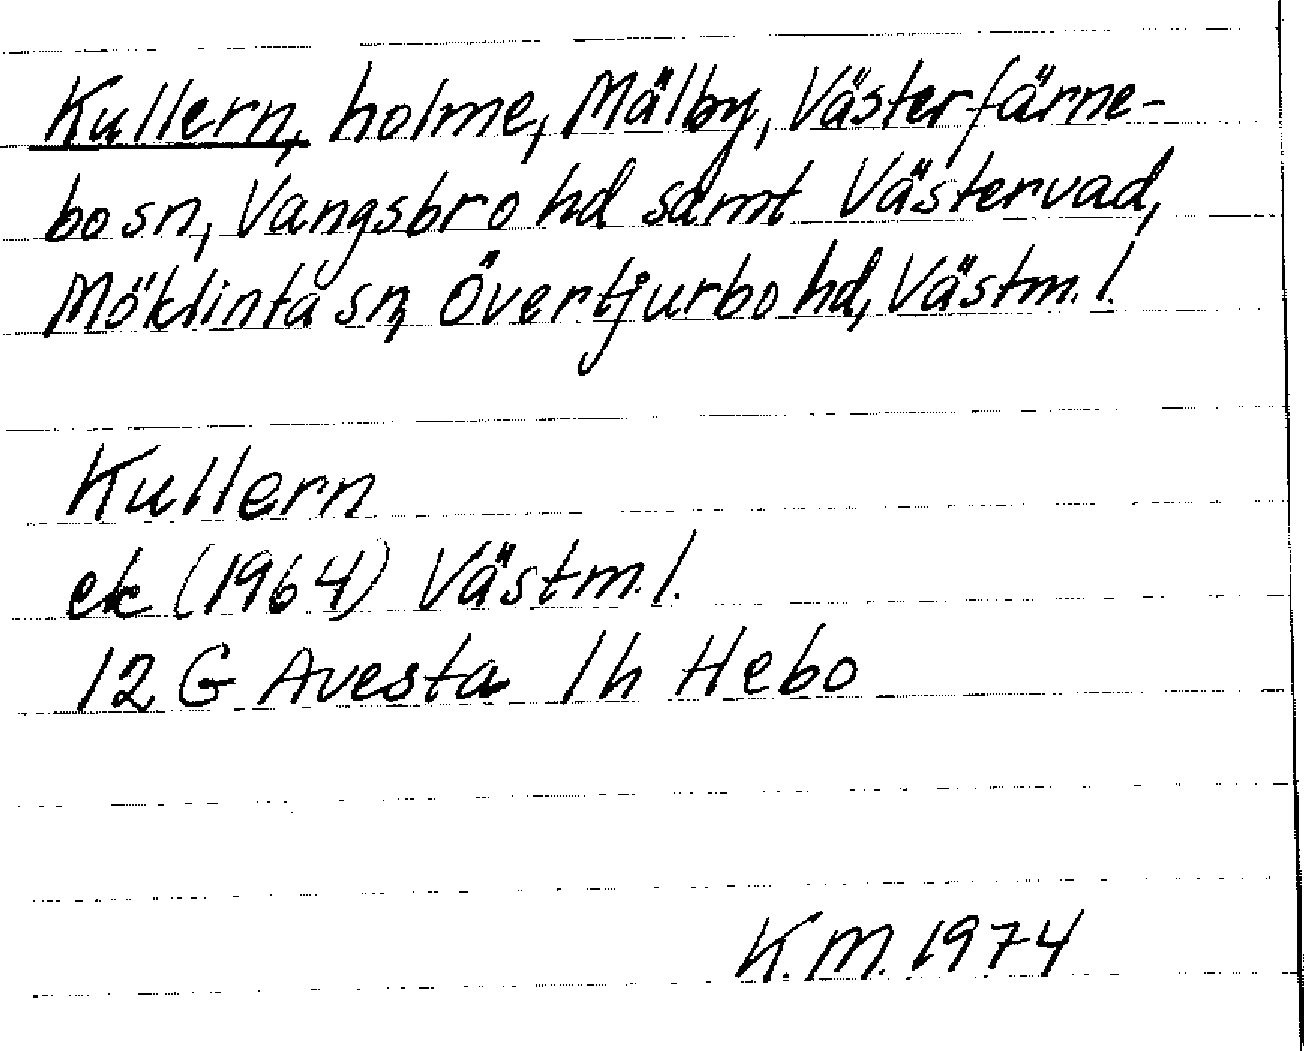 Kullern, holme, Mälby, Västerfärne-
bo sn, Vangsbro hd samt Västervad,
Möklinta sn, Övertjurbo hd, Västm.l.
Kullern
ek (1964) Västm.l.
12 G Avesta 1h Hebo
K.M. 1974